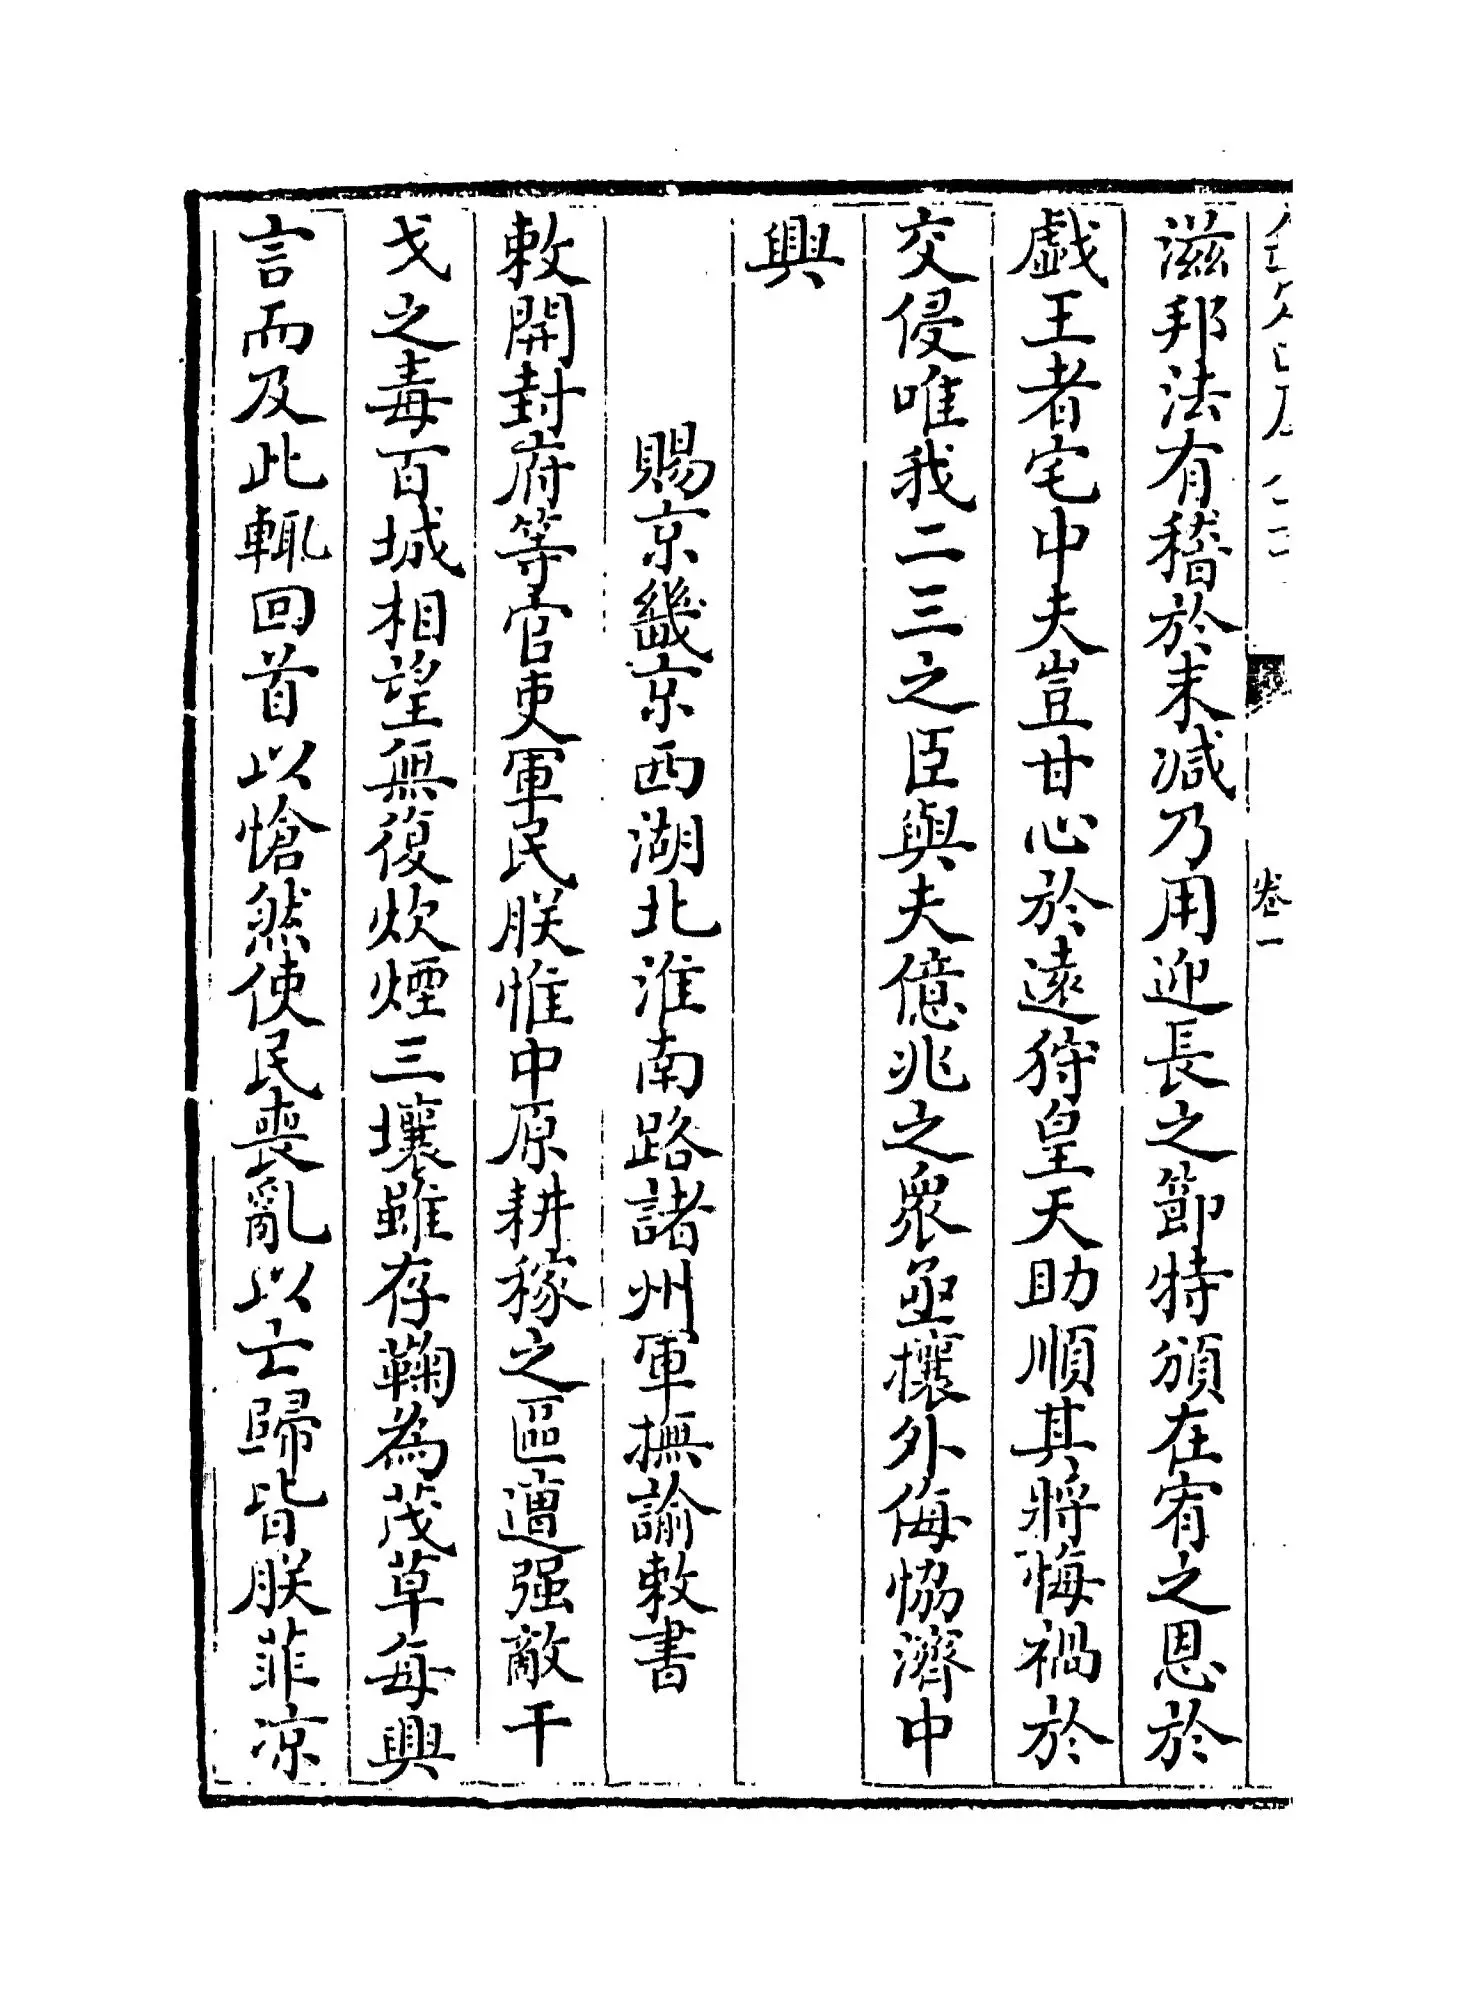 卷一
滋邦法有稽於末减乃用迎長之節特頒在宥之恩於
戯王者宅中夫豈甘心於遠狩皇天助順其將悔禍於
交侵唯我二三之臣與夫億兆之衆亟攘外侮恊濟中
興
賜京畿京西湖北淮南路諸州軍撫諭敕書
敕開封府等官吏軍民朕惟中原耕稼之區遭强敵干
戈之毒百城相望無復炊煙三壤雖存鞠為茂草每興
言而及此輒回首以愴然使民喪亂以亡歸皆朕菲凉